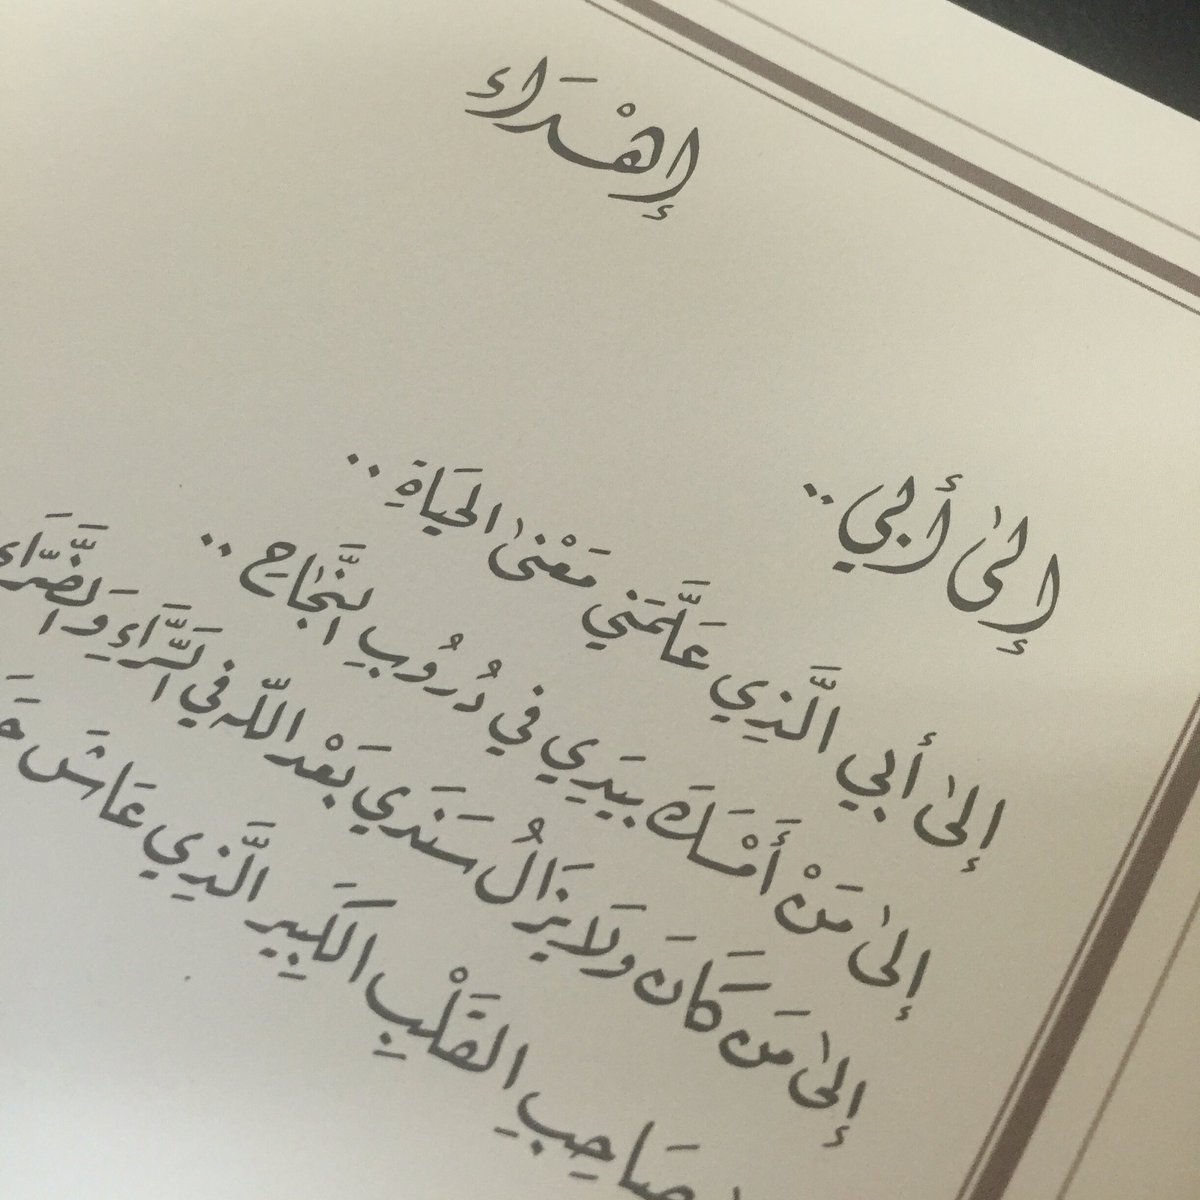 إهْدَاء
إلىٰ أَبي ..
إلىٰ أَبي الَّذِي عَلَّمَني مَعْنىٰ الحَيَاةِ ..
إلىٰ مَنْ أَمْسَكَ بيَدِي في دُرُوبِ النَّجَاحِ ..
إلىٰ مَن كَانَ ولَا يزَالُ سَنَدي بَعْد اللّه في السَّرَّاءِ وَالضَّرَّاء
صَاحِبِ القَلْبِ الكَبِيرِ الَّذِي عَاشَ